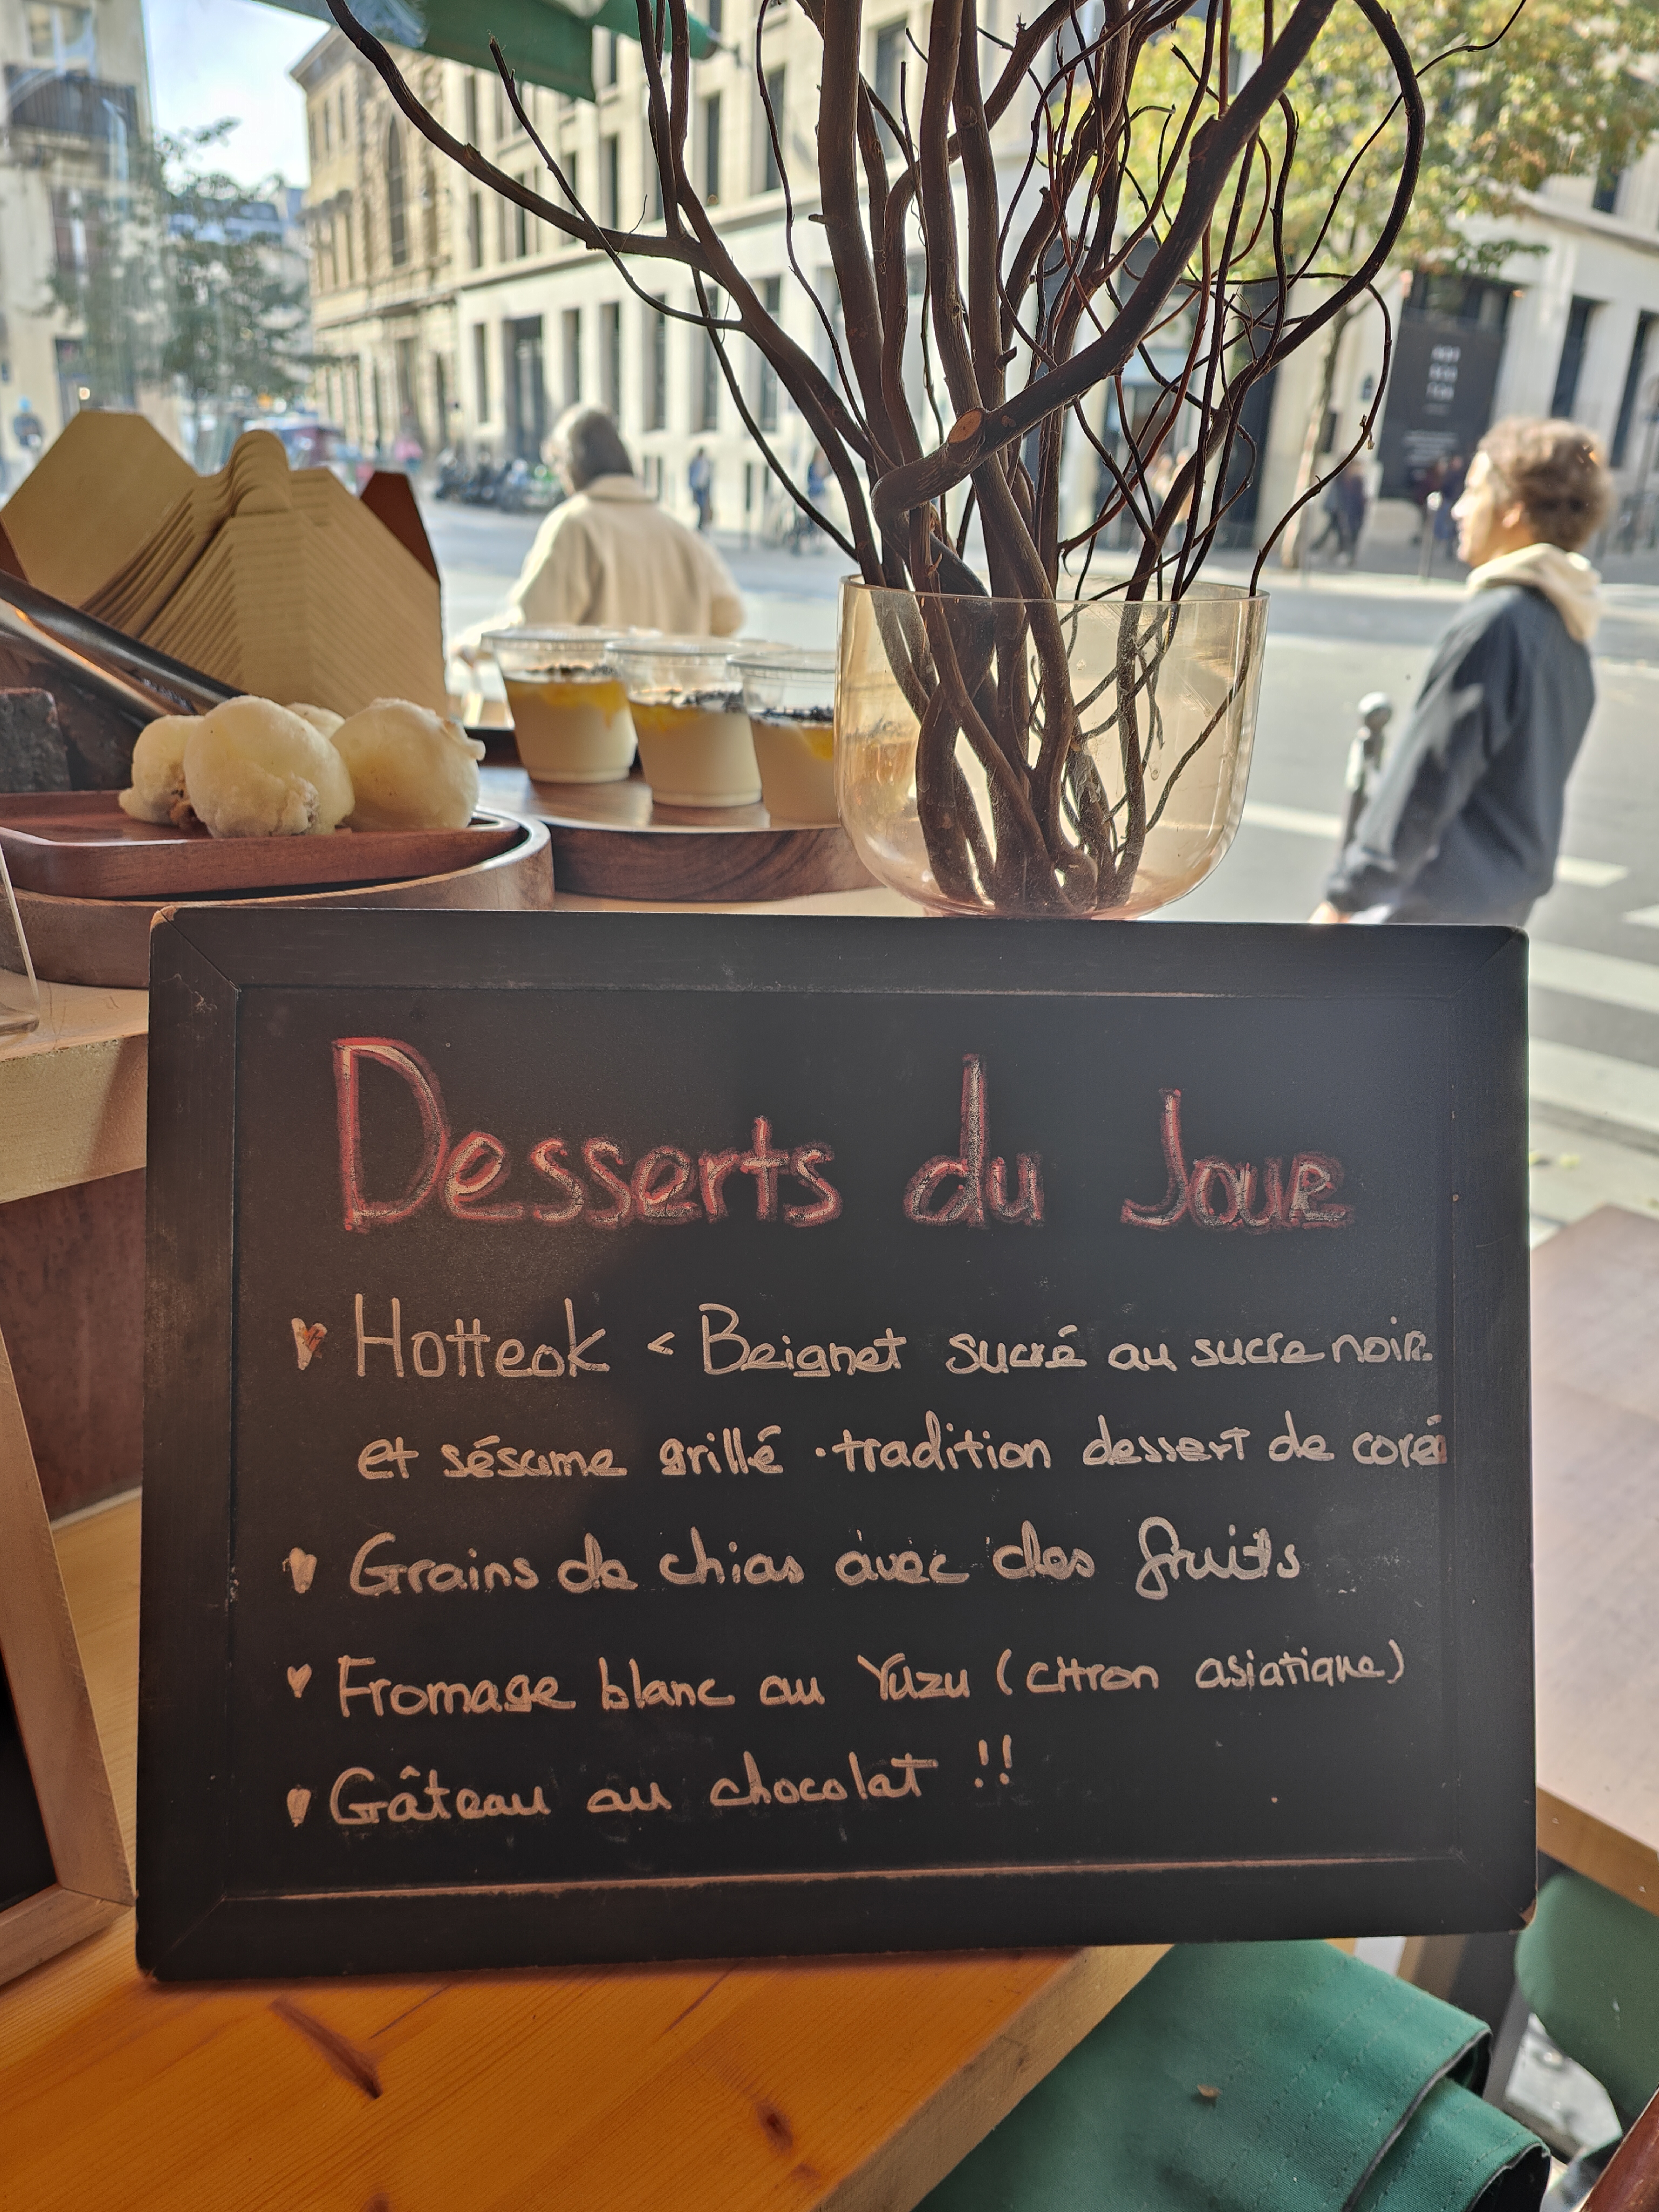 Desserts du Jour
Hotteok < Beignet sucré au sucre noir.
et sésame grillé · tradition dessert de coré
Grains de chias avec des fruits
Fromage blanc au Yuzu (citron asiatique)
Gâteau au chocolat !!